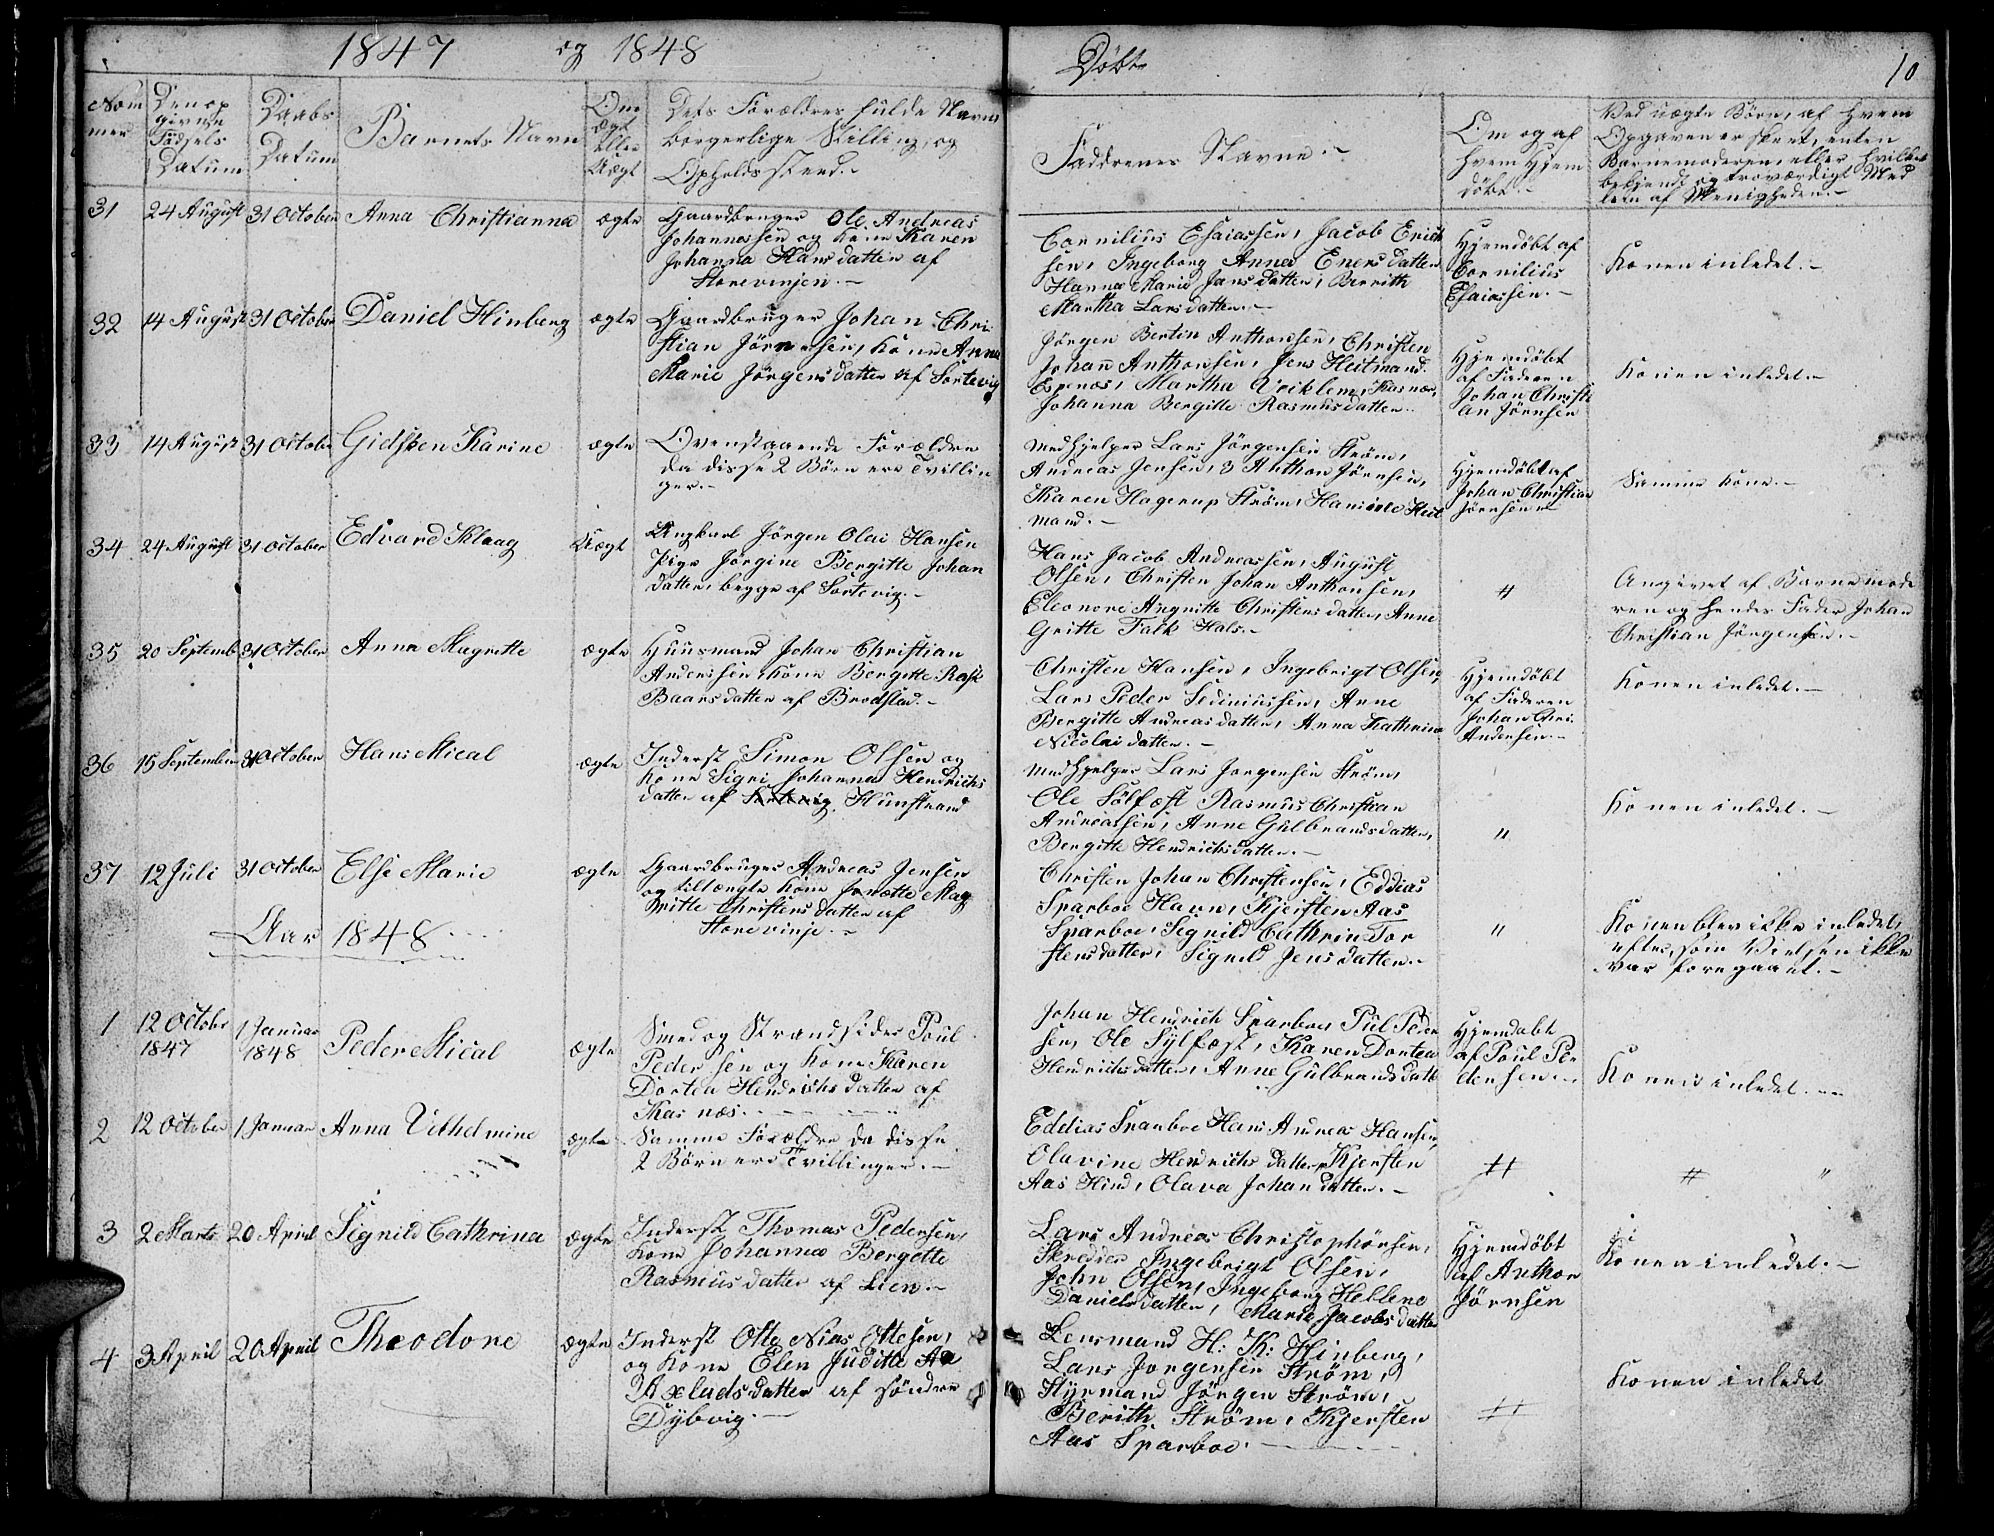 1847 og 1848 Døbte 10
Nom
mer
Den op
givne
Fødsels
Datum
Daabs
Datum
Barnets Navn
Om
ægt
Eller
Uægt
Dets Forældres fulde Navn
borgerlige Stilling, og
Opholdssteed.-
Faddrenes Navne.-
Om og af
hvem hjem
døbt.-
Ved uægte Børn, af hvem
Opgaven er skeet, enten
Barnemoderen, eller hvilket
bekjendt og troværdigt Med
lem af Menigheden.-
31 24 August 31 October Anna Christianna ægte
Gaardbruger Ole Andreas
Johannessen og Kone Karen
Johanna Hansdatter af
Storevinjen.-
Cornilius Esaiassen, Jacob Erich
sen, Ingeborg Anna Enersdatter
Hanna Marie Jansdatter, Berrith
Martha Larsdatter.-
Hjemdøbt af
Cornilius
Esaiassen.-
Konen inledet.-
32 14 August 31 October Daniel Hinberg ægte
Gaardbruger Johan Chri
stian Jørnsen, Kone Anna
Marie Jørgensdatter af Sortevig
Jørgen Bertin Anthonsen, Christen
Johan Anthonsen, Jens Heitmand
Espenæs, Martha Kasnæs,
Johanna Bergitte Rasmusdatter.
Hjemdøbt
af Faderen
Johan Christi
an Jørnsen
Konen inledet.-
33 14 August 31 October Gidsken Karine ægte
Ovenstaaende Forældre
da disse 2 Børn ere Tvillin
ger.-
Medhjelper Lars Jørgensen Strøm,
Andreas Jensen, Anthon Jørnsen,
Karen Hagerup Strøm, Heit
mand.-
Hjemdøbt af
Johan Christian
Jørnsen
Samme Kone.-
34 24 August 31 October Edvard Klaag Uægt
Ungkarl Jørgen Olai Hansen
Pige Jørgine Bergitte Johan
datter, begge af Sortevig.-
Hans Jacob Andreassen, August
Olsen, Christen Johan Anthonsen,
Eleonore Angnitte Christensdatter, Anne
Gritte Falk Hals.-
"
Angivet af Barnemode
ren og hendes Fader Johan
Christian Jørgensen.-
35 20 Septemb 31 October Anna Magrette ægte
Huusmand Johan Christian
Anderssen, Kone Bergitte Rasi
Baarsdatter af Bredsted.-
Christen Hansen, Ingebrigt Olsen,
Lars Peder Sediniussen, Anne
Bergitte Andreasdatter, Anna Kathrine
Nicolaidatter.-
Hjemdøbt
af Faderen
Johan Chri.
Andersen.-
Konen inledet.-
36 15 September 31 October Hans Mical ægte
Inderst Simon Olsen og
Kone Signi Johanna Hendrichs
datter af Sortevig Hunstrand
Medhjelper Lars Jørgensen Strøm,
Ole Sølfæst, Rasmus Christian
Andreassen, Anne Gulbrandsdatter,
Bergitte Hendrichsdatter.-
"
Konen inledet.-
37 12 Juli 31 October Else Marie ægte
Gaardbruger Andreas Jensen
og tiltængte Kone Jonette Mag
nitte Christensdatter af
Storevinje.-
Christen Johan Christensen, Eddias
Sparboe Havn, Kjersten Aas
Sparboe, Signild Cathrin Tor
stensdatter, Signild Jensdatter.-
"
Konen blev ikke inledet,
eftersom Vielsen ikke
var foregaaet.-
Aar 1848
1 12 Octobr
1847
1 Januar
1848
Peder Mical ægte
Smed og Strandsider Poul
Pedersen og Kone Karen
Dortea Hendrichsdatter af
Kasnæs.
Johan Hendrich Sparboe, Pul Peder
sen, Ole Sylfæst, Karen Dortea
Hendrichsdatter, Anne Gulbrandsdatt
Hjemdøbt
af Poul Pe
dersen.-
Konen inledet.-
2 12 October 1 Januar Anna Vilhelmine ægte
Samme Forældre da disse
2 Børn ere Tvillinger.-
Eddias Sparboe Hans Andreas Hansen,
Olavine Hendrichsdatter, Kjersten
Aas Hind, Olava Johandatter.-
" " "
3 2 Marts 20 April Signild Cathrina ægte
Inderst Thomas Pedersen,
Kone Johanna Bergette
Rasmusdatter af Lien.-
Lars Andreas Christophersen,
Skredder Ingebrigt Olsen,
John Olsen, Ingeborg Hellene
Danielsdatter, Marte Jacobsdatter
Hjemdøbt
af Anthon
Jørnsen
Konen inledet.-
4 3 April 20 April Theodore ægte
Inderst Otte Nias Ottesen,
og Kone Elen Juditte
Axeludsdatter af søndre
Dybvig.-
Lensmand H: K: Hinberg,
Lars Jørgensen Strøm,
Styrmand Jørgen Strøm,
Berith Strøm, Kjersten
Aas Sparboe.-
"
Konen inledet